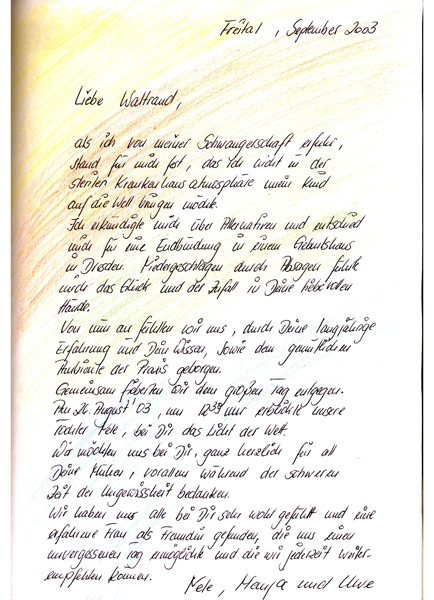 Freital, September 2003
Liebe Waltraud,
als ich von meiner Schwangerschaft erfuhr,
stand für mich fest, das ich nicht in der
sterilen Krankenhausatmosphäre mein Kind
auf die Welt bringen möchte.
Ich erkundigte mich über Alternativen und entschied
mich für eine Entbindung in einem Geburtshaus
in Dresden. Niedergeschlagen durch Absagen führte
mich das Glück und der Zufall in Deine liebevollen
Hände.
Von nun an fühlten wir uns, durch Deine langjährige
Erfahrung und Dein Wissen, sowie dem gemütlichen
Ambiente der Praxis geborgen.
Gemeinsam fieberten wir dem großen Tag entgegen.
Am 26. August '03, um Uhr erblickte unsere
Tochter Nele, bei Dir das Licht der Welt.
Wir möchten uns bei Dir, ganz herzlich für all
Deine Mühen, vorallem während der schweren
Zeit der Ungewissheit bedanken.
Wir haben uns alle bei Dir sehr wohl gefühlt und eine
erfahrene Frau als Freundin gefunden, die uns einen
unvergessenen Tag ermöglichte und die wir jederzeit weiter-
empfehlen können.
Nele, Manja und Uwe